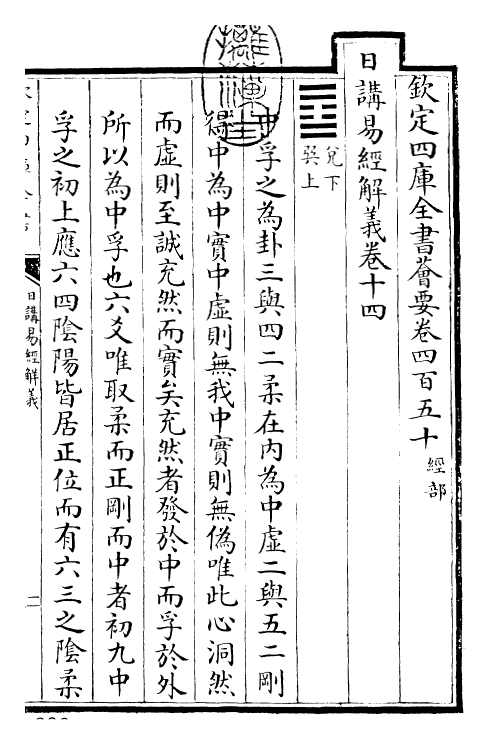 欽定四庫全書薈要卷四百五十 經部
日講易經解義卷十四
兌下
巽上
中孚之為卦三與四二柔在內為中虛二與五二剛
得中為中實中虛則無我中實則無偽唯此心洞然
而虛則至誠充然而實矣充然者發於中而孚於外
所以為中孚也六爻唯取柔而正剛而中者初九中
孚之初上應六四陰陽皆居正位而有六三之陰柔
日講易經解義